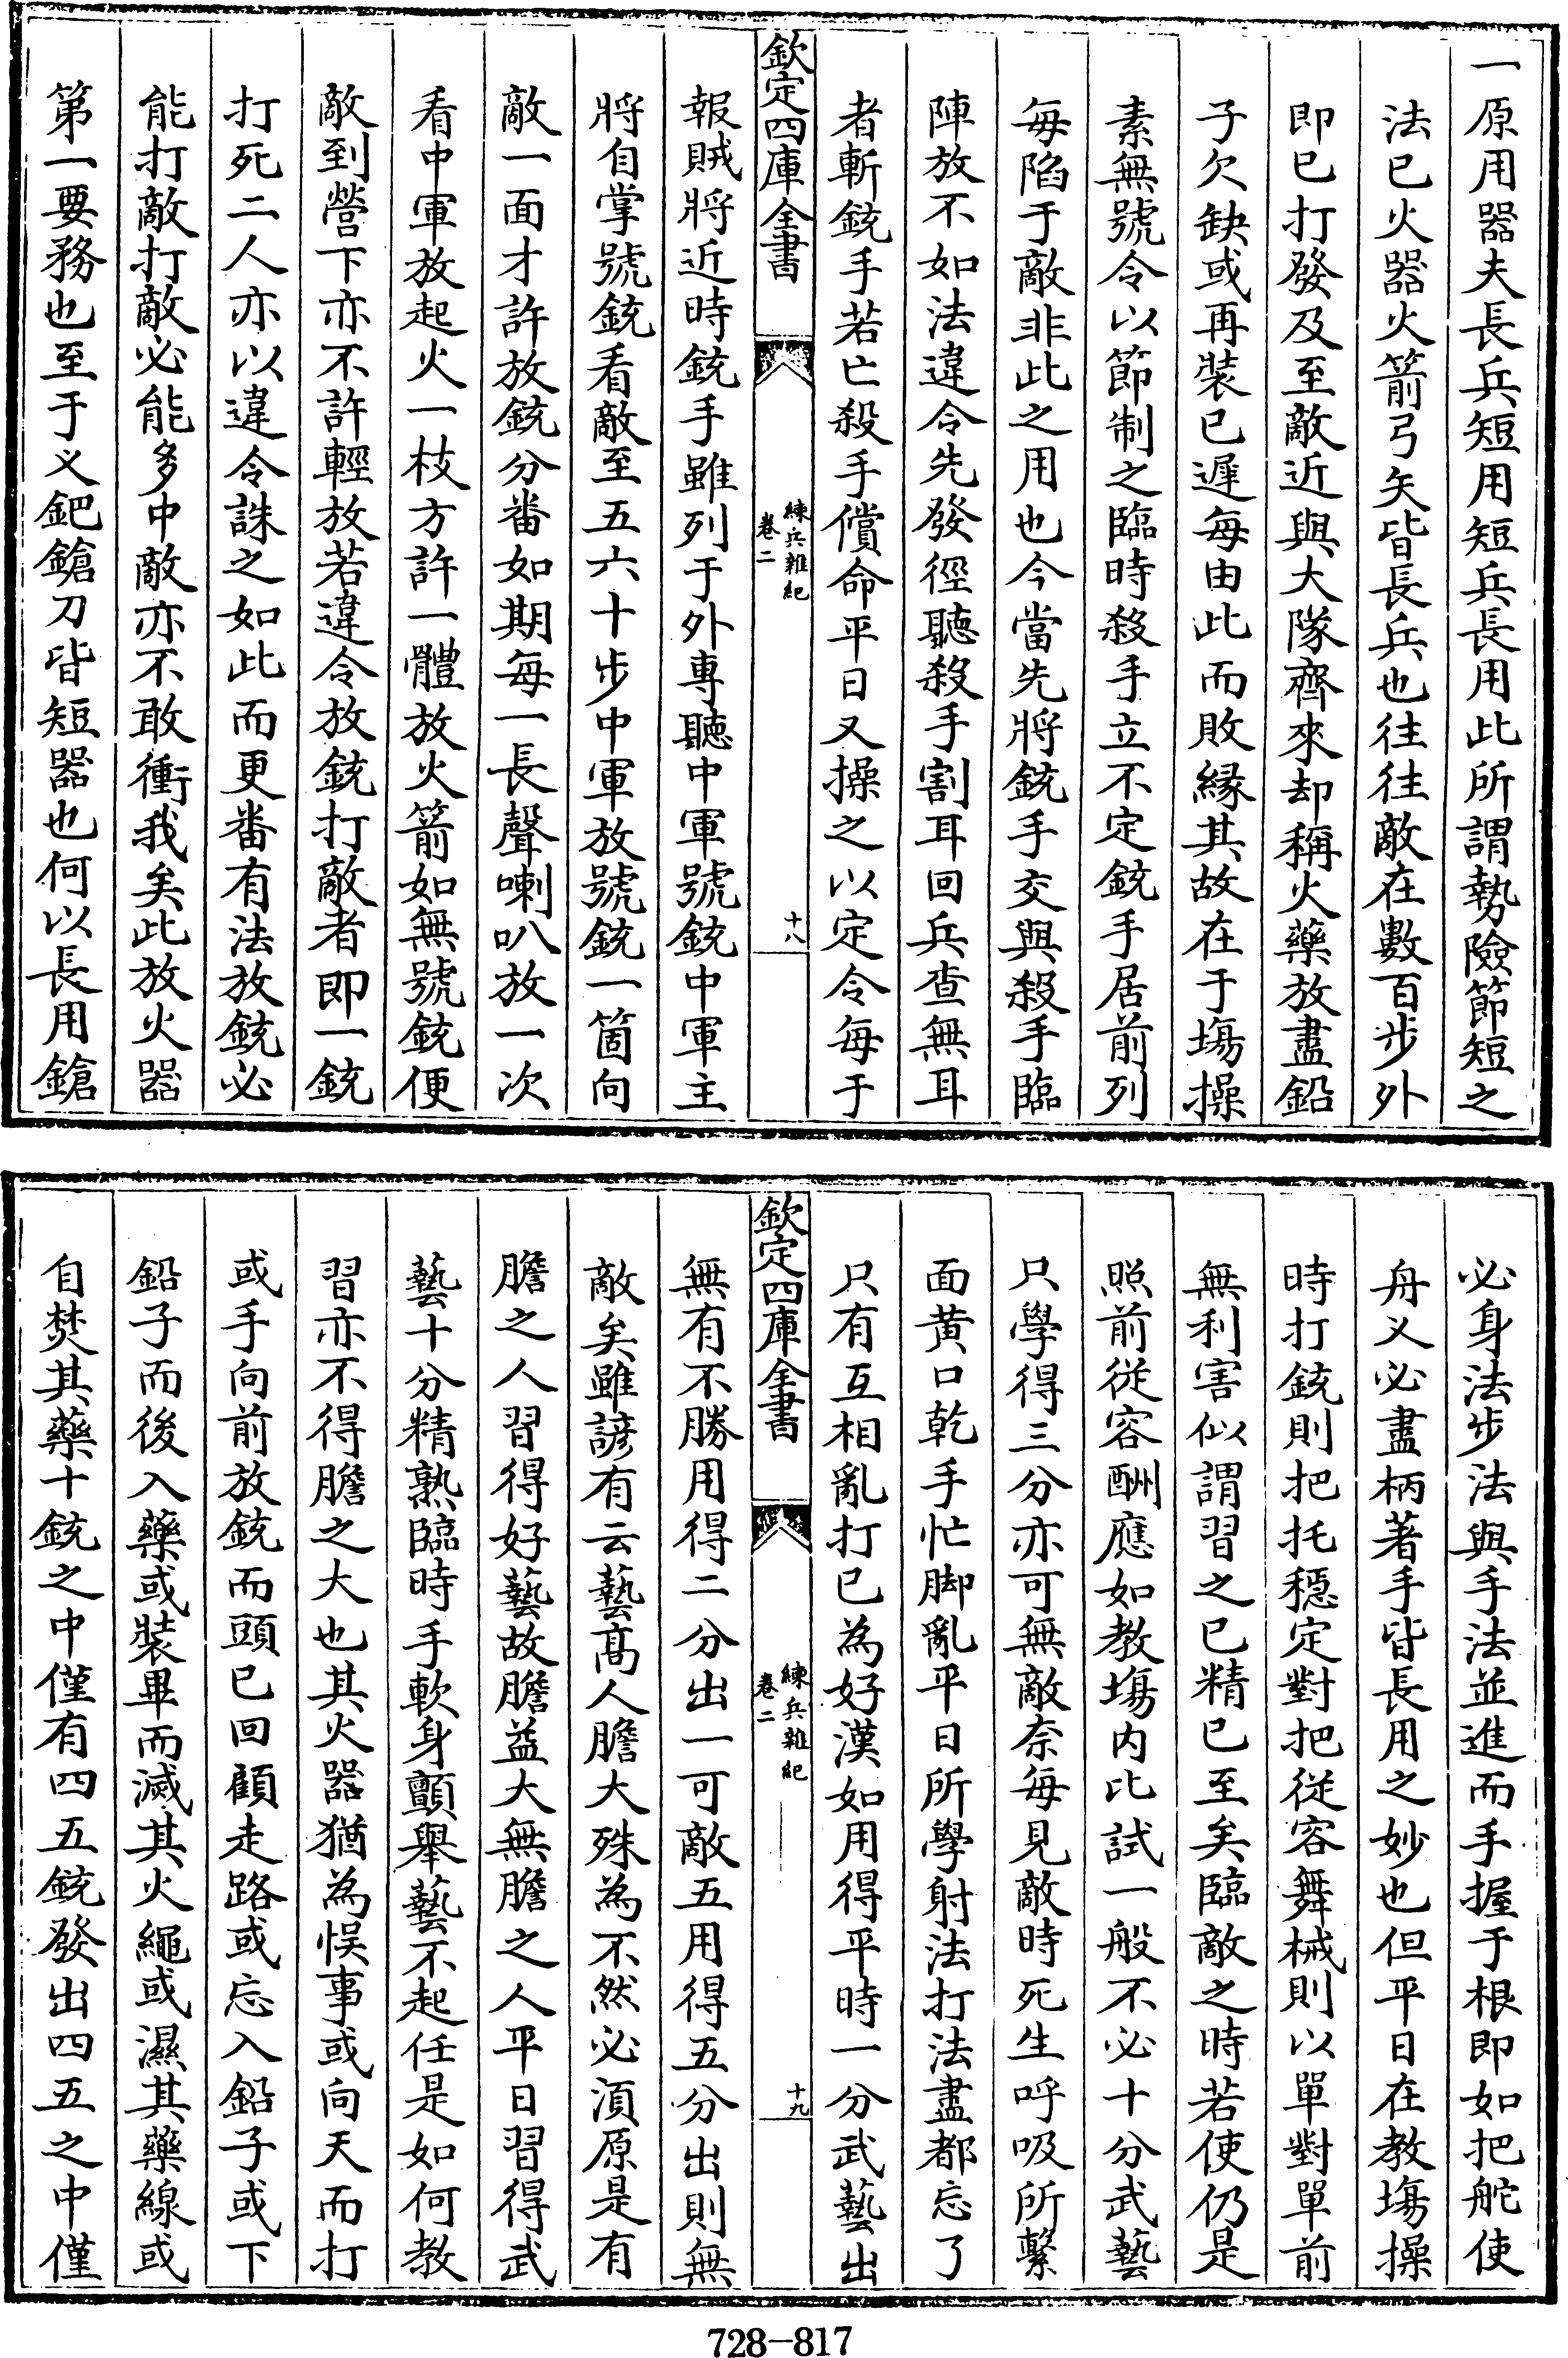 一原用器夫長兵短用短兵長用此所謂勢險節短之
法已火器火箭弓矢皆長兵也往往敵在數百步外
即已打發及至敵近與大隊齊來却稱火藥放盡鉛
子欠缺或再裝已遲每由此而敗緣其故在于塲操
素無號令以節制之臨時殺手立不定銃手居前列
每陷于敵非此之用也今當先將銃手交與殺手臨
陣放不如法違令先發徑聽殺手割耳回兵查無耳
者斬銃手若亡殺手償命平日又操之以定令每于
欽定四庫全書
練兵雜紀
卷二
十八
報賊將近時銃手雖列于外專聽中軍號銃中軍主
將自掌號銃看敵至五六十步中軍放號銃一箇向
敵一面才許放銃分番如期每一長聲喇叭放一次
看中軍放起火一枝方許一體放火箭如無號銃便
敵到營下亦不許輕放若違令放銃打敵者即一銃
打死二人亦以違令誅之如此而更番有法放銃必
能打敵打敵必能多中敵亦不敢衝我矣此放火器
第一要務也至于义鈀鎗刀皆短器也何以長用鎗
必身法步法與手法並進而手握于根即如把舵使
舟义必盡柄著手皆長用之妙也但平日在教塲操
時打銃則把托穩定對把從容舞械則以單對單前
無利害似謂習之已精已至矣臨敵之時若使仍是
照前從容酬應如教塲内比試一般不必十分武藝
只學得三分亦可無敵奈每見敵時死生呼吸所繫
面黄口乾手忙脚亂平日所學射法打法盡都忘了
只有互相亂打已為好漢如用得平時一分武藝出
欽定四庫全書
練兵雜紀
卷二
十九
無有不勝用得二分出一可敵五用得五分出則無
敵矣雖諺有云藝髙人膽大殊為不然必湏原是有
膽之人習得好藝故膽益大無膽之人平日習得武
藝十分精熟臨時手軟身顫舉藝不起任是如何教
習亦不得膽之大也其火器猶為悞事或向天而打
或手向前放銃而頭已回顧走路或忘入鉛子或下
鉛子而後入藥或裝畢而滅其火繩或濕其藥線或
自焚其藥十銃之中僅有四五銃發出四五之中僅
728-817